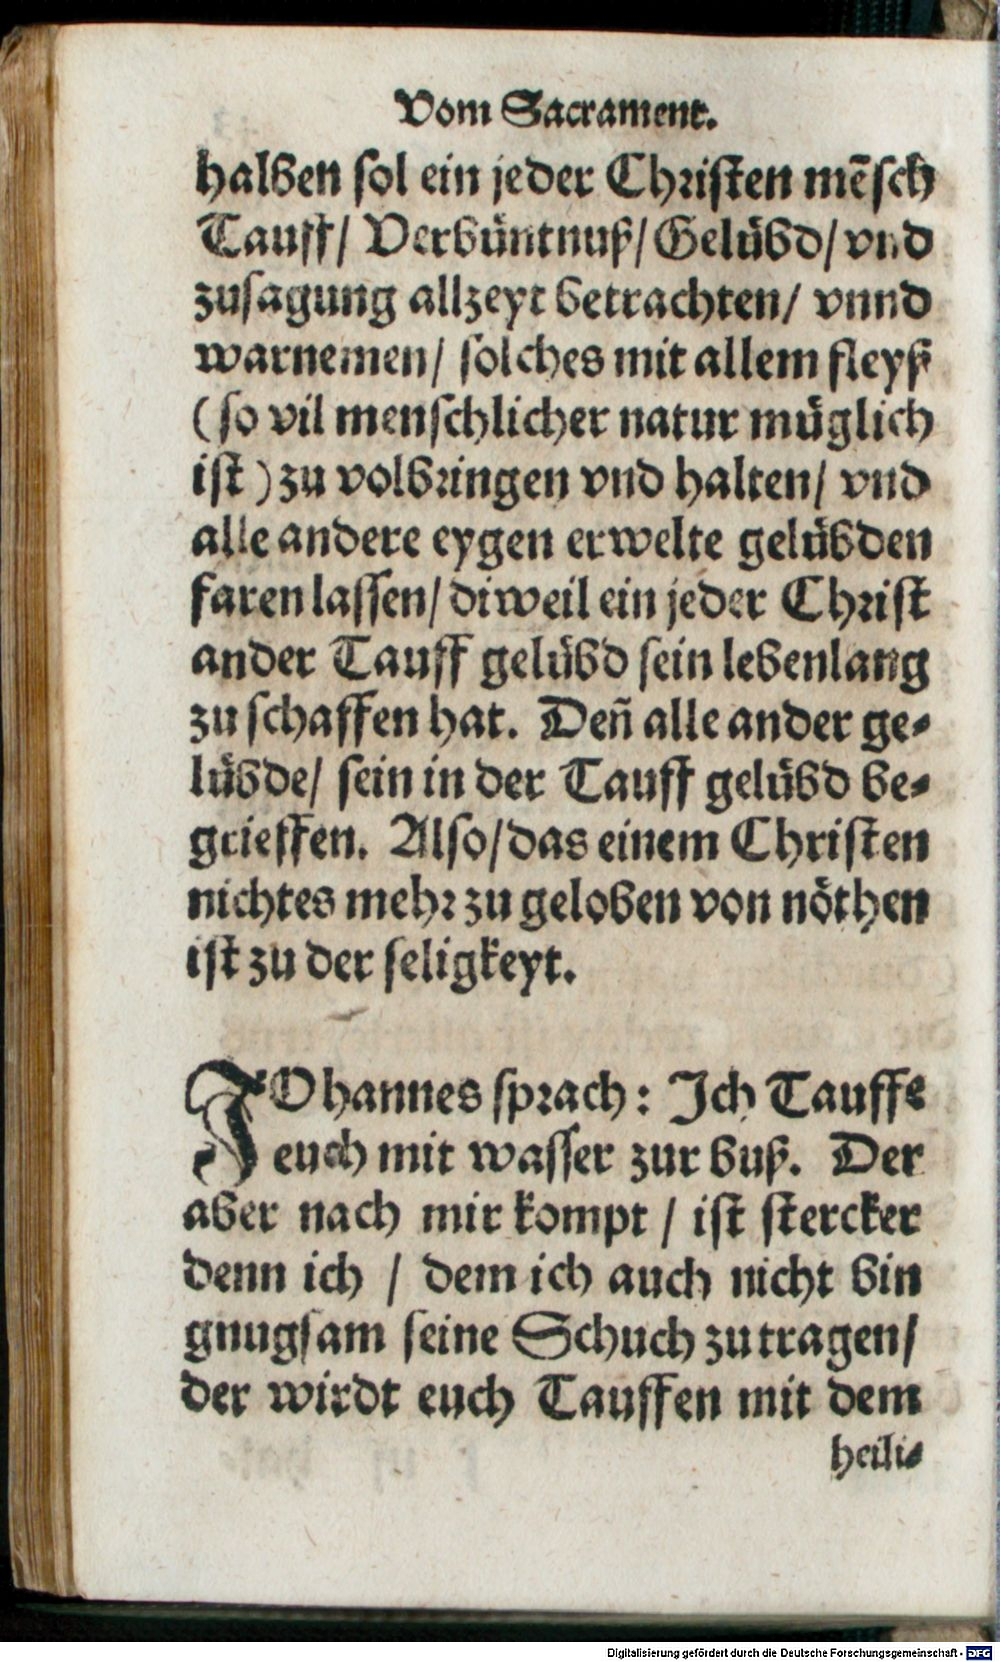 Vom Sacrament.
halben sol ein jeder Christen mẽsch
Tauff/ Verbüntnuß/ Gelübd/ vnd
zusagung allzeyt betrachten/ vnnd
warnemen/ solches mit allem fleyß
(so vil menschlicher natur müglich
ist) zu volbringen vnd halten/ vnd
alle andere eygen erwelte gelübden
faren lassen/ diweil ein jeder Christ
ander Tauff gelübd sein lebenlang
zu schaffen hat. Deñ alle ander ge⸗
lübde/ sein in der Tauff gelübd be⸗
grieffen. Also/ das einem Christen
nichtes mehr zu geloben von nöthen
ist zu der seligkeyt.
JOhannes sprach: Ich Tauffe
euch mit wasser zur buß. Der
aber nach mir kompt / ist stercker
denn ich / dem ich auch nicht bin
gnugsam seine Schuch zu tragen/
der wirdt euch Tauffen mit dem
heili⸗
Digitalisierung gefördert durch die Deutsche Forschungsgemeinschaft - DFG